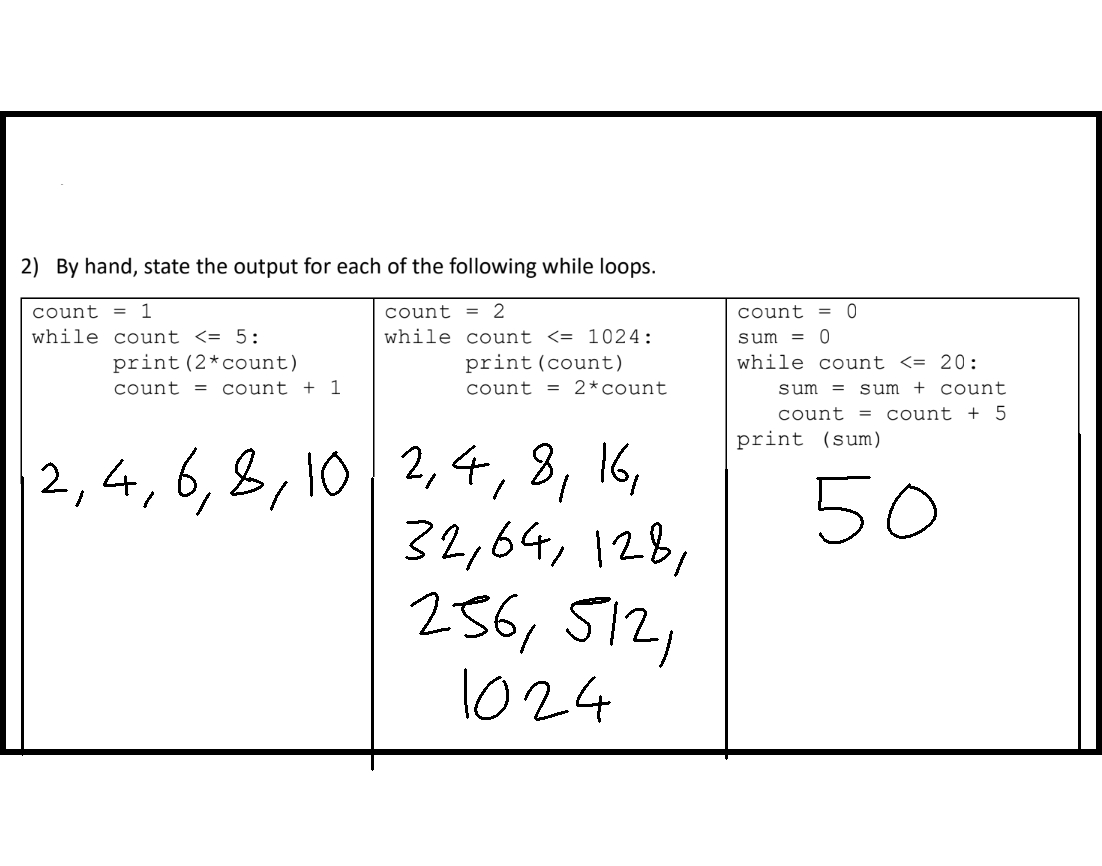 2) By hand, state the output for each of the following while loops.
count = 1
while count <= 5:
print(2*count)
count = count + 1
2, 4, 6, 8, 10
count = 2
while count <= 1024:
print(count)
count = 2*count
2, 4, 8, 16,
32, 64, 128,
256, 512,
1024
count = 0
sum = 0
while count <= 20:
sum = sum + count
count = count + 5
print (sum)
50